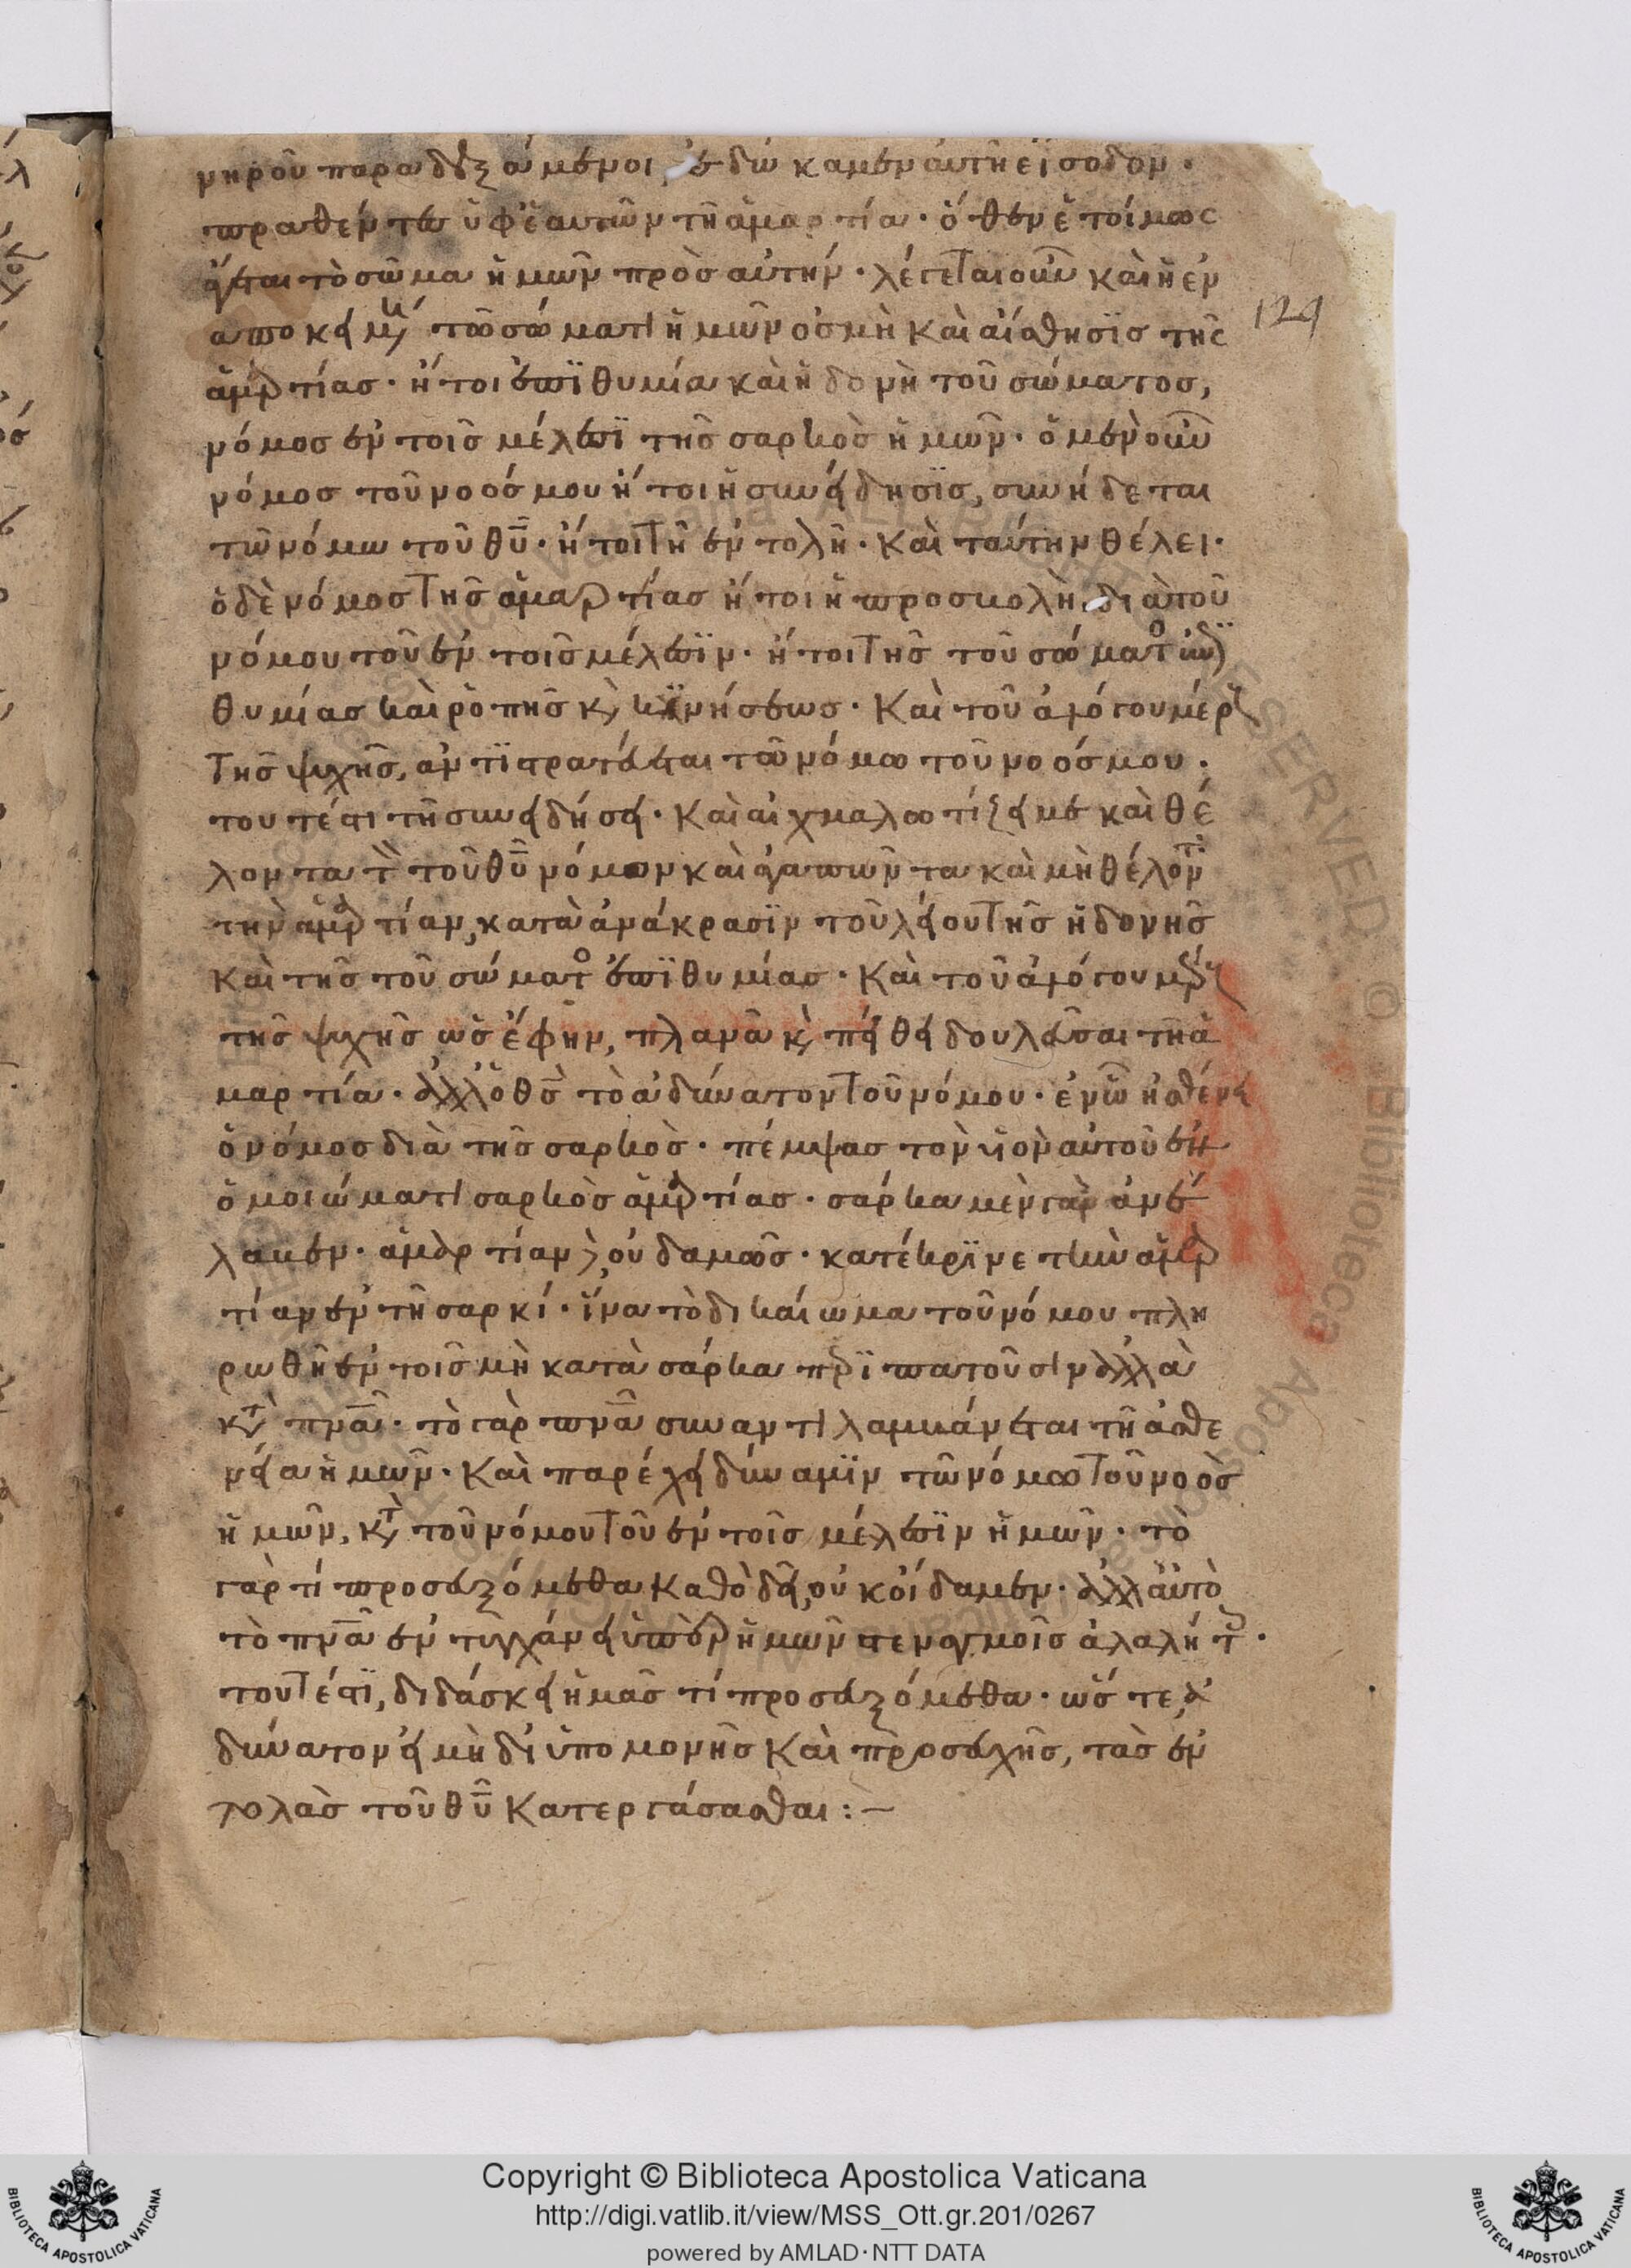 νηροῦ παραδεξάμενοι, ἐδώκαμεν αὐτῆ εἴσοδον·
πραθέντες ὑφ' ἑαυτῶν τῆ ἁμαρτία· ὅθεν ἑτοίμως
ἕπεται τὸ σῶμα ἡμῶν πρὸς αὐτήν· λέγεται οὖν καὶ ἡ ἐν
αποκειμένη τῶ σώματι ἡμῶν ὀσμὴ καὶ αἴσθησϊς τῆς
ἁμαρτίας· ἤτοι ἐπϊθυμία καὶ ἡδονὴ τοῦ σώματος,
νόμος ἐν τοῖς μέλεσϊ τῆς σαρκὸς ἡμῶν· ὁ μὲν οὖν
νόμος τοῦ νοός μου ἤτοι ἡ συνείδησϊς, συνήδεται
τῶ νόμω τοῦ θῦ· ἤτοι τῆ ἐντολῆ· Καὶ ταύτην θέλει·
ὁ δὲ νόμος τῆς ἁμαρτίας ἤτοι ἡ προσβολὴ, διὰ τοῦ
νόμου τοῦ ἐν τοῖς μέλεσϊν· ἤτοι τῆς τοῦ σώματος ἐπϊ
θυμίας καὶ ῥοπῆς κ(αὶ) κϊνήσεως· Καὶ τοῦ ἀλόγου μέρους
τῆς ψυχῆς, ἀντϊστρατεύεται τῶ νόμω τοῦ νοός μου·
τουτέστι τῆ συνειδήσει· Καὶ αἰχμαλωτίζει με καὶ θέ
λοντα τὸν τοῦ θῦ νόμον καὶ ἀγαπῶντα καὶ μὴ θέλοντα
τὴν ἁμαρτίαν, κατὰ ἀνάκρασϊν τοῦ λείου τῆς ἡδονῆς
καὶ τῆς τοῦ σώματος ἐπϊθυμίας· Καὶ τοῦ ἀλόγου μέρους
τῆς ψυχῆς ὡς ἔφην, πλανᾶ κ(αὶ) πείθει δουλεῦσαι τῆ ἁ
μαρτία· ἀλλ' ὁ θς τὸ ἀδύνατον τοῦ νόμου· ἐν ᾧ ἠσθένει
ὁ νόμος διὰ τῆς σαρκὸς· πέμψας τὸν υἱὸν αὐτοῦ ἐν
ὁμοιώματι σαρκὸς ἁμαρτίας· σάρκα μὲν γὰρ ἀνέ
λαβεν· ἁμαρτίαν δὲ, οὐδαμῶς· κατέκρϊνε τὴν ἁμαρ
τίαν ἐν τῆ σαρκί· ἵνα τὸ δικαίωμα τοῦ νόμου πλη
ρωθῆ ἐν τοῖς μὴ κατὰ σάρκα περϊπατοῦσιν ἀλλὰ
κατὰ πνᾶ· τὸ γὰρ πνᾶ συναντιλαμβάνεται τῆ ἀσθε
νεία ἡμῶν· Καὶ παρέχει δύναμϊν τῶ νόμω τοῦ νοὸς
ἡμῶν, κατὰ τοῦ νόμου τοῦ ἐν τοῖς μέλεσϊν ἡμῶν· τὸ
γὰρ τί προσευξόμεθα καθὸ δεῖ, οὐκ οἴδαμεν· ἀλλ' αὐτὸ
τὸ πνᾶ ἐντυγχάνει ὑπὲρ ἡμῶν στεναγμοῖς ἀλαλήτοις·
τουτέστϊ, διδάσκει ἡμᾶς τί προσευξόμεθα· ὥστε, ἀ
δύνατον εἰ μὴ δι' ὑπομονῆς καὶ προσευχῆς, τὰς ἐν
τολὰς τοῦ θῦ κατεργάσασθαι :–
129
Copyright © Biblioteca Apostolica Vaticana
http://digi.vatlib.it/view/MSS_Ott.gr.201/0267
powered by AMLAD·NTT DATA